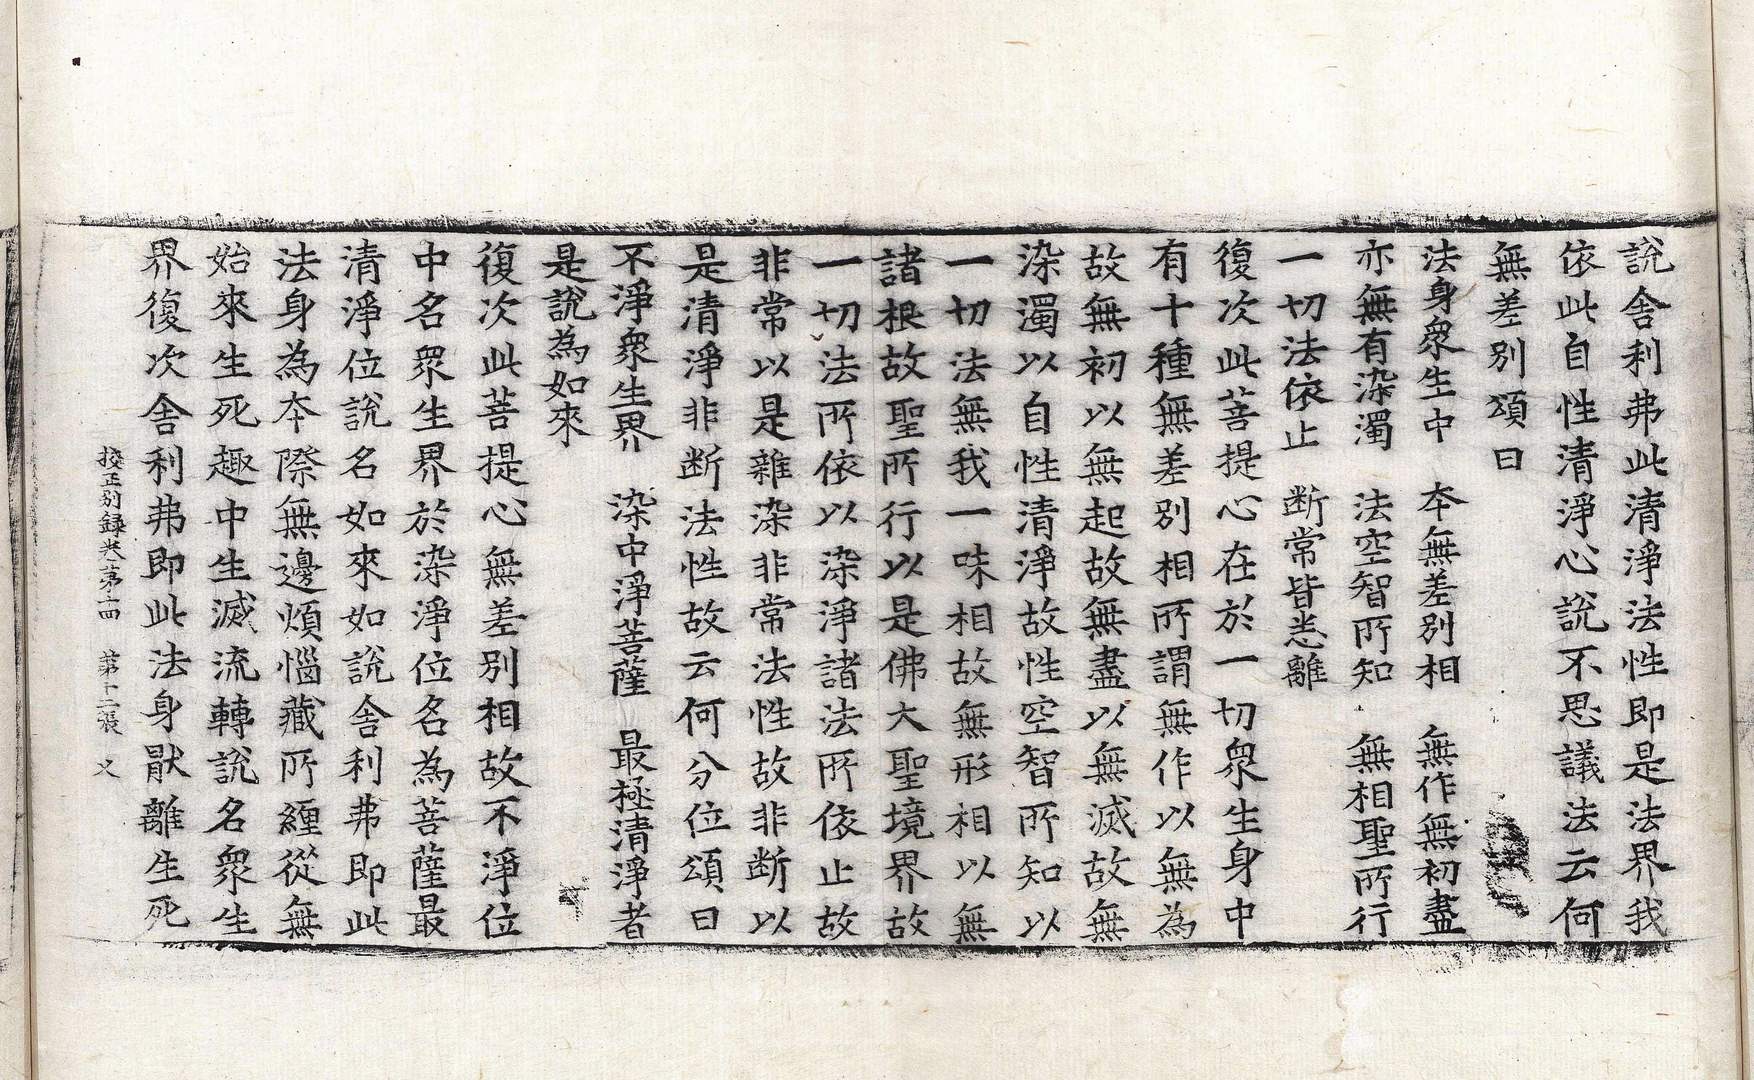 說舍利弗此清淨法性即是法界我
依此自性清淨心說不思議法云何
無差別頌曰
法身衆生中　夲無差别相　無作無初盡
亦無有染濁　法空智所知　無相聖所行
一切法依止　断常皆悉離
復次此菩提心在於一切衆生身中
有十種無差别相所謂無作以無為
故無初以無起故無盡以無滅故無
染濁以自性清淨故性空智所知以
一切法無我一味相故無形相以無
諸根故聖所行以是佛大聖境界故
一切法所依以染淨諸法所依止故
非常以是雜染非常法性故非断以
是清淨非断法性故云何分位頌曰
不淨衆生界　染中淨菩薩　最極清淨者
是說為如來
復次此菩提心無差别相故不淨位
中名衆生界於染淨位名為菩薩最
清淨位說名如來如說舍利弗即此
法身為夲際無邊煩惱藏所纏從無
始來生死趣中生滅流轉說名衆生
界復次舍利弗即此法身猒離生死
挍正别録卷第十四　第十二張　乂